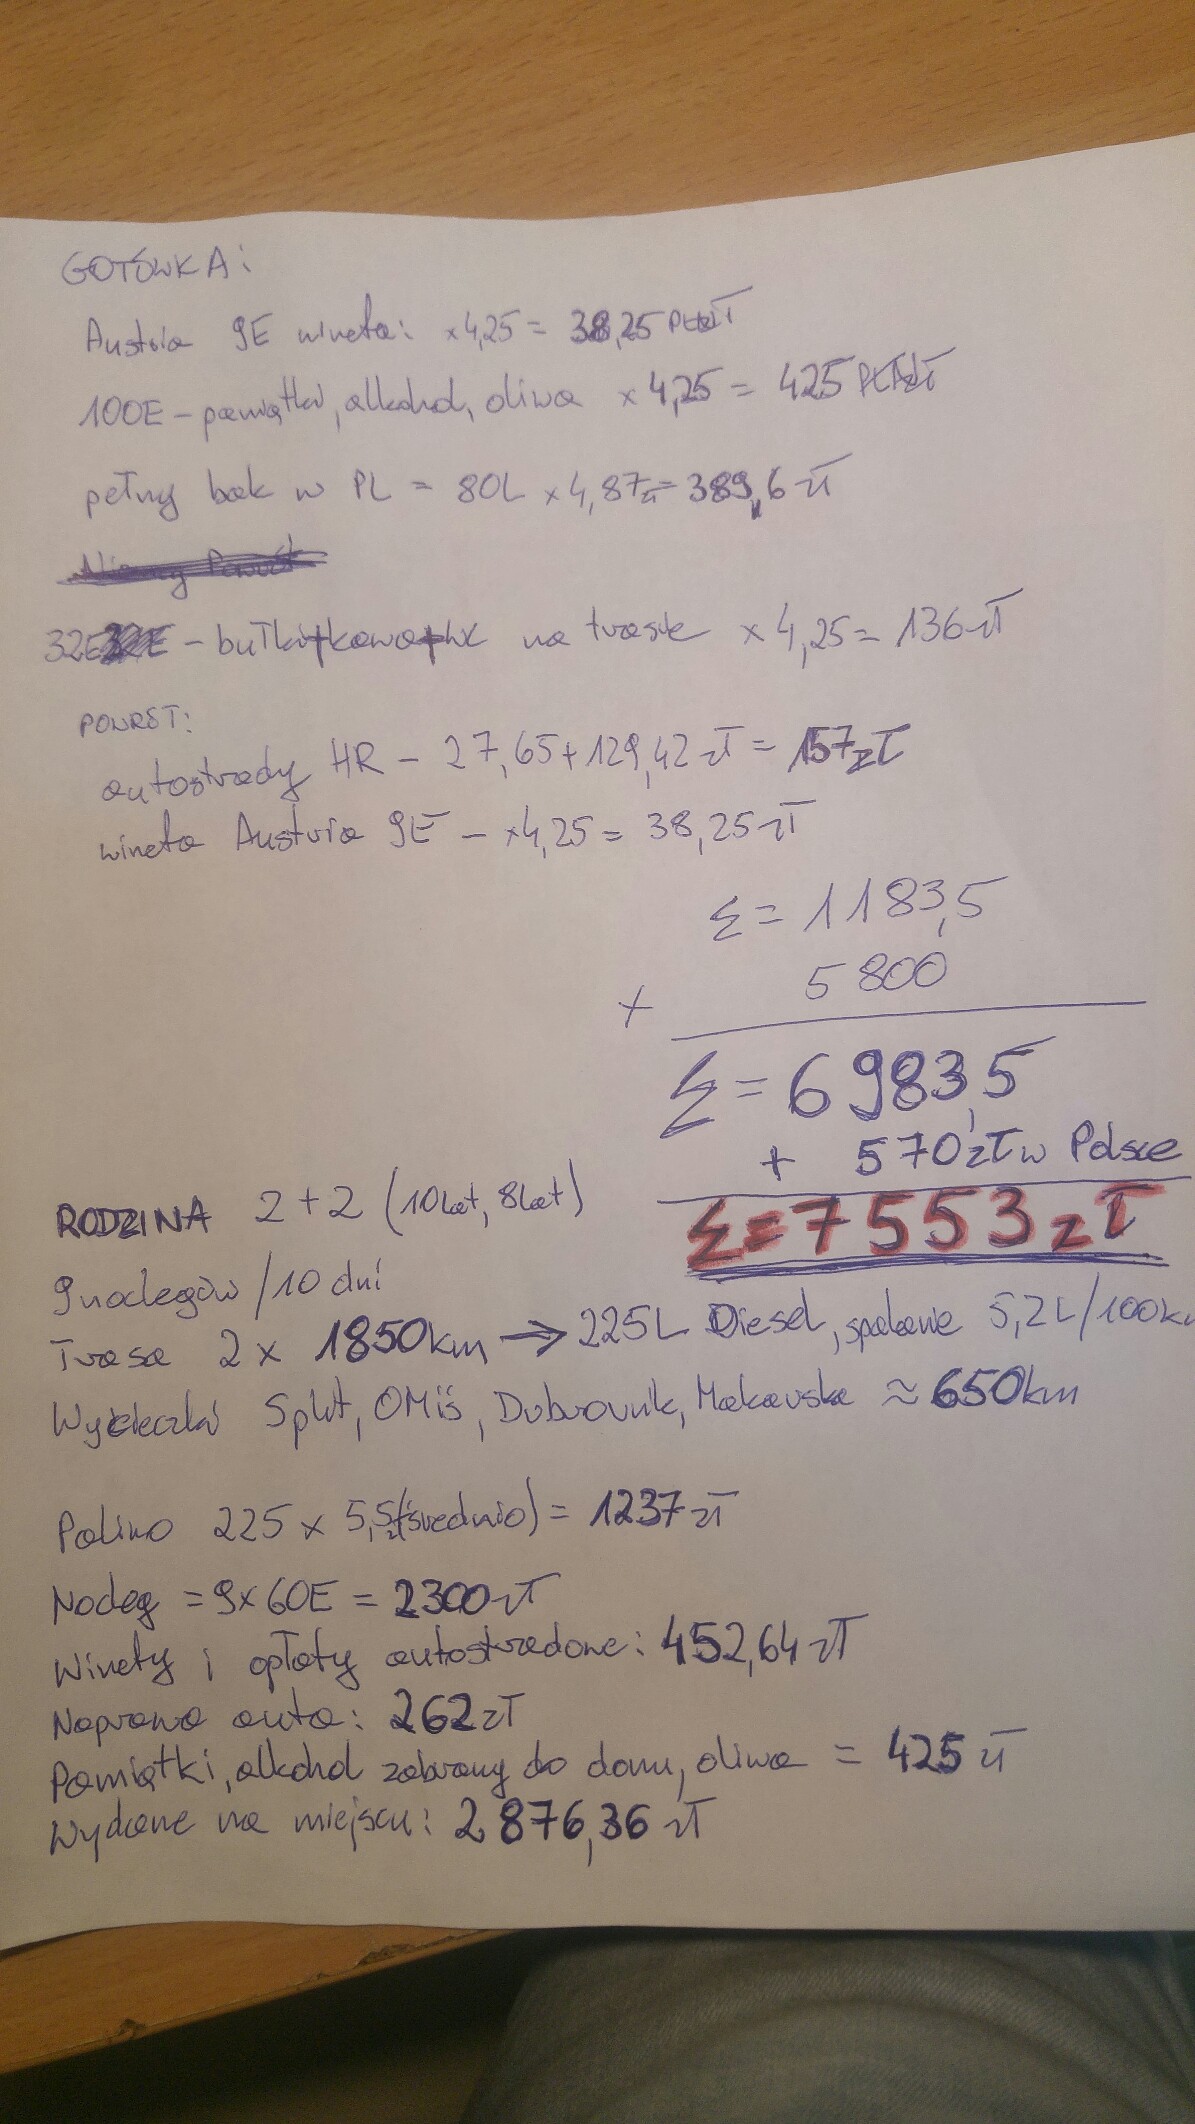 GOTÓWKA:
Austria 9E wineta: x4,25 = 38,25
100E - pamiątki, alkohol, oliwa x 4,25 = 425
pełny bak w PL = 80L x 4,87zł = 389,6 zł
32E - bułki+kawa+wc na trasie x 4,25 = 136 zł
POWRÓT:
autostrady HR - 27,65+129,42 zł = 157 zł
wineta Austria 9E - x4,25 = 38,25 zł
Σ = 1183,5
+ 5800
Σ = 6983,5
+ 570 zł w Polsce
Σ = 7553 zł
RODZINA 2+2 (10lat, 8lat)
9 noclegów / 10 dni
Trasa 2 x 1850km → 225L Diesel, spalanie 5,2L/100km
Wycieczki Split, OMiš, Dubrovnik, Makarska ≈ 650km
Paliwo 225 x 5,5zł (średnio) = 1237 zł
Nocleg = 9x60E = 2300 zł
Winety i opłaty autostradowe: 452,64 zł
Naprawa auta: 262 zł
Pamiątki, alkohol zabrany do domu, oliwa = 425 zł
Wydane na miejscu: 2876,36 zł